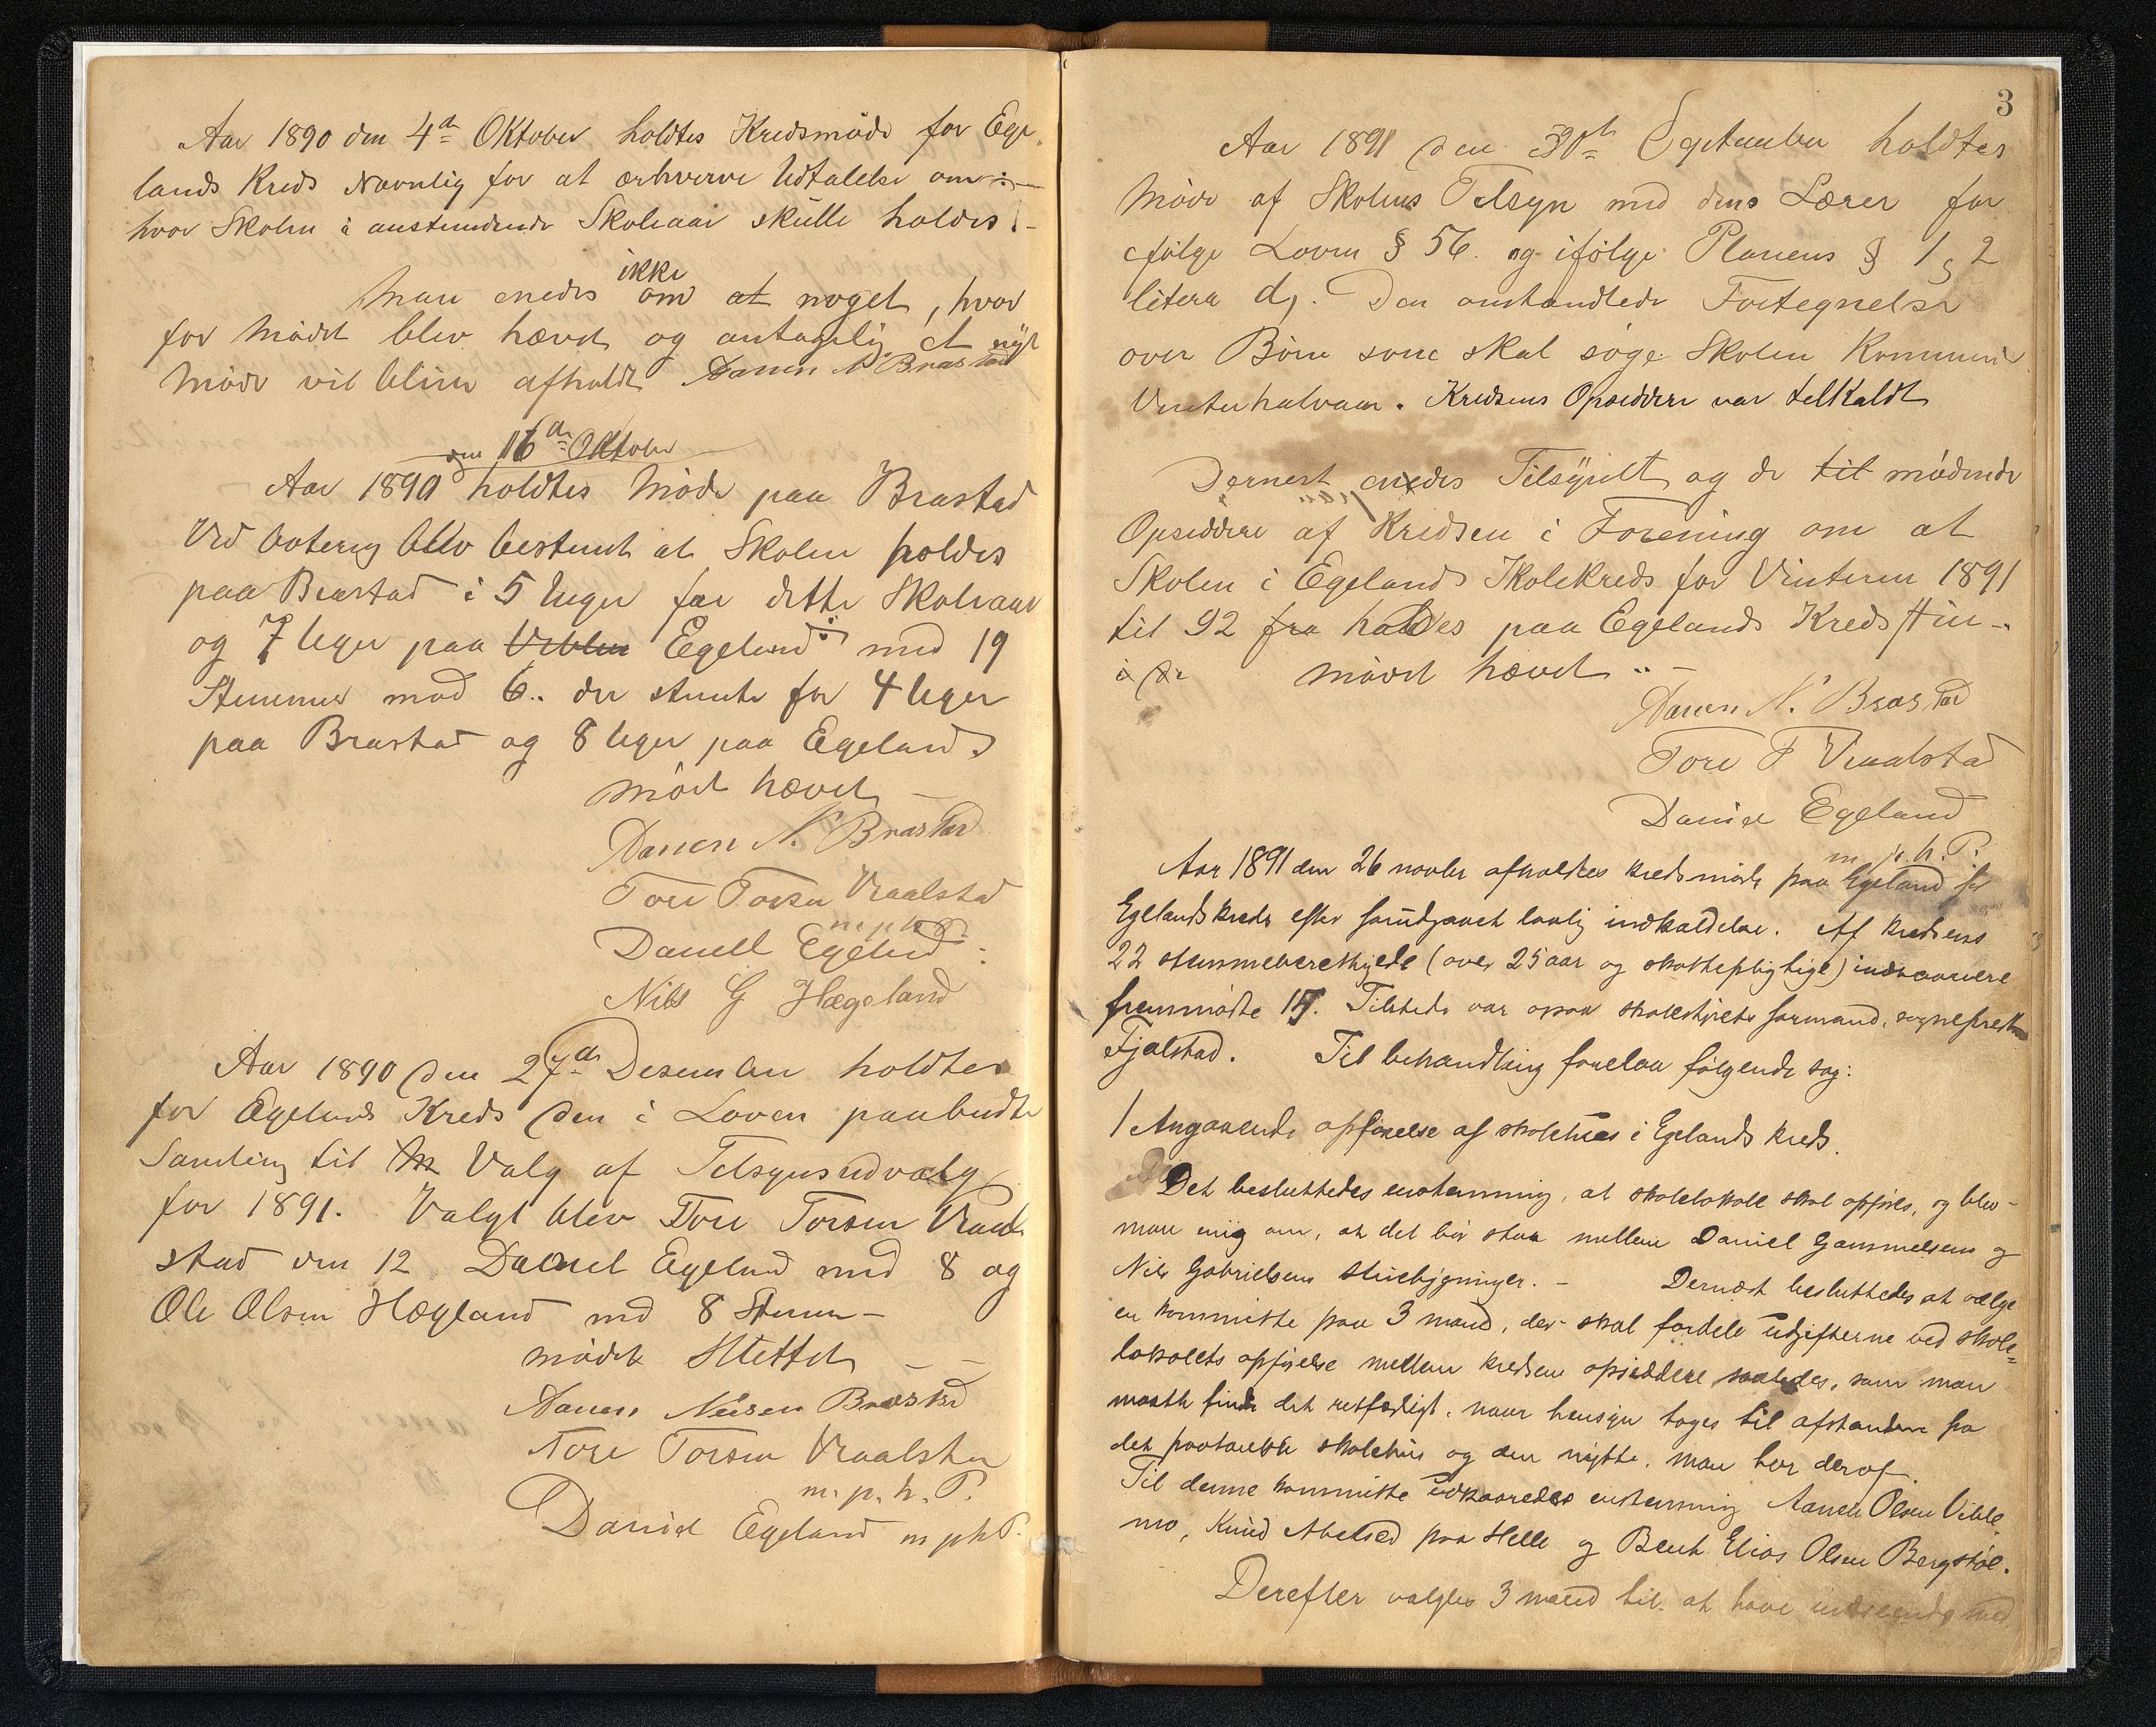 Aar 1890 den 4de Oktober holdtes Kredsmöde for Ege-
lands Kreds Navnlig for at erhverve Udtalelse om :-
hvor Skolen i anstundende Skoleaar skulle holdes !-
ikke
Man enedes om at noget, hvor
for Mödet blev hævet og antagelig et nyt
Möde vil blive afholdt Aanen N. Brastad
den 16de Oktober
Aar 1890 holdtes Möde paa Brastad
Ved Votering blev bestemt at Skolen holdes
paa Brastad i 5 Uger for dette Skoleaar
og 7 Uger paa Viblem Egeland med 19
Stemmer mod 6.. der stemte for 4 Uger
paa Brastad og 8 Uger paa Egeland.
Mödet hævet —
Aanen N. Brastad
Tore Torsen Vraalstad
m p h P
Daniell Egeland
Nils G Hægeland
Aar 1890 den 27de Desember holdtes
for Egelands Kreds den i Loven paabudte
Samling til Valg af Tilsynsudvalg
for 1891. Valgt blev Tore Torsen Vraal-
stad ven 12 Daniel Egeland med 8 og
Ole Olsen Hægland med 8 Stem —
mödet Sluttet — —
Aanen Nilsen Brastad
Tore Torsen Vraalstad
m. p. h. P.
Daniel Egeland m p h P.
3
Aar 1891 den 30te September holdtes
Möde af Skolens Tilsyn med dens Lærer for
efölge Loven § 56. og ifölge Planens § 1, 2
litera d). Den omhandlede Fortegnelse
over Börn som skal söge Skolen Kommende
Vinterhalvaar. Kredsens Opsiddere var tilkaldt
Dernest enedes Tilsynet og de til mödende
Opsiddere af Kredsen i Forening om at
Skolen i Egelands Skolekreds for Vinteren 1891
til 92 fra holdes paa Egelands Kreds Stue -
i de mödet hævet .. —
Aanen N. Brastad
Tore T Vraalstad
Daniel Egeland
m. p. h. P.
Aar 1891 den 26 novbr afholdtes kredsmöde paa Egeland for
Egelands kreds efter forudgaaet lovlig indkaldelse. Af kredsens
22 stemmeberettigede (over 25 aar og skattepligtige) indvaanere
fremmödte 17. Tilstede var ogsaa skolestyrets formand, sogneprest
Fjalstad. Til behandling forelaa fölgende sag:
1 Angaaende opförelse af skolehus i Egelands kreds.
Det besluttedes enstemmig, at skolelokale skal opföres, og blev
man enig om, at det bör staa mellem Daniel Gammelsens og
Nils Gabrielsens stuebygninger. — Dernæst besluttedes at vælge
en kommitte paa 3 mand, der skal fordele udgifterne ved skole=
lokalets opförelse mellem kredsens opsiddere saaledes, som man
maatte finde det retfærdigt, naar hensyn toges til afstanden fra
det paatænkte skolehus og den nytte, man har deraf.
Til denne kommitte udkaaredes enstemmig Aanen Olsen Vible
mo, Knud Abelsed paa Helle og Bent Elias Olsen Bergstöl.
Derefter valgtes 3 mand til at have indseende med